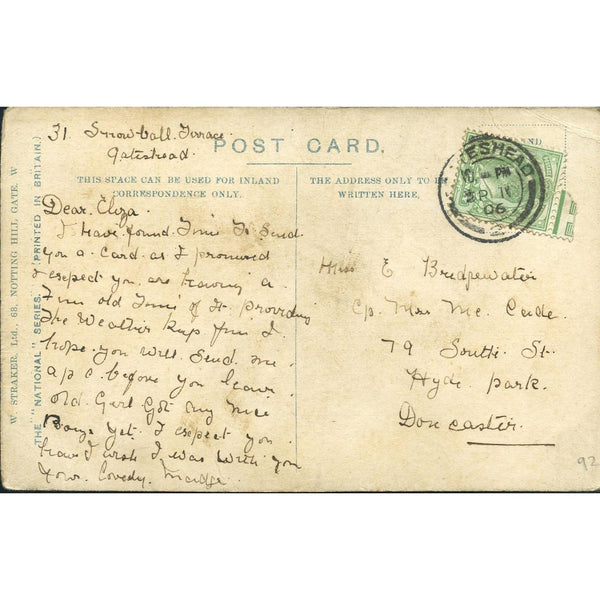 31. Snowball. Terrace.
Gateshead.
POST CARD.
THIS SPACE CAN BE USED FOR INLAND
CORRESPONDENCE ONLY.
Dear. Eliza.
I have found Time To Send
you a Card as I promised
I expect you are having a
Fine old Time of It. Providing
The Weather Keep fine I
hope you will Send me
a p c before you leave
old Girl Got any nice
Boys yet. I expect you
have I wish I was with you
Madge.
THE ADDRESS ONLY TO BE
WRITTEN HERE.
Miss E Bridgewater
79 South St.
Hyde park.
Doncaster.
ESHEAD
PM
06
2
92
W. STRAKER, Ltd., 68, NOTTING HILL GATE, W.
THE "NATIONAL" SERIES. (PRINTED IN BRITAIN.)